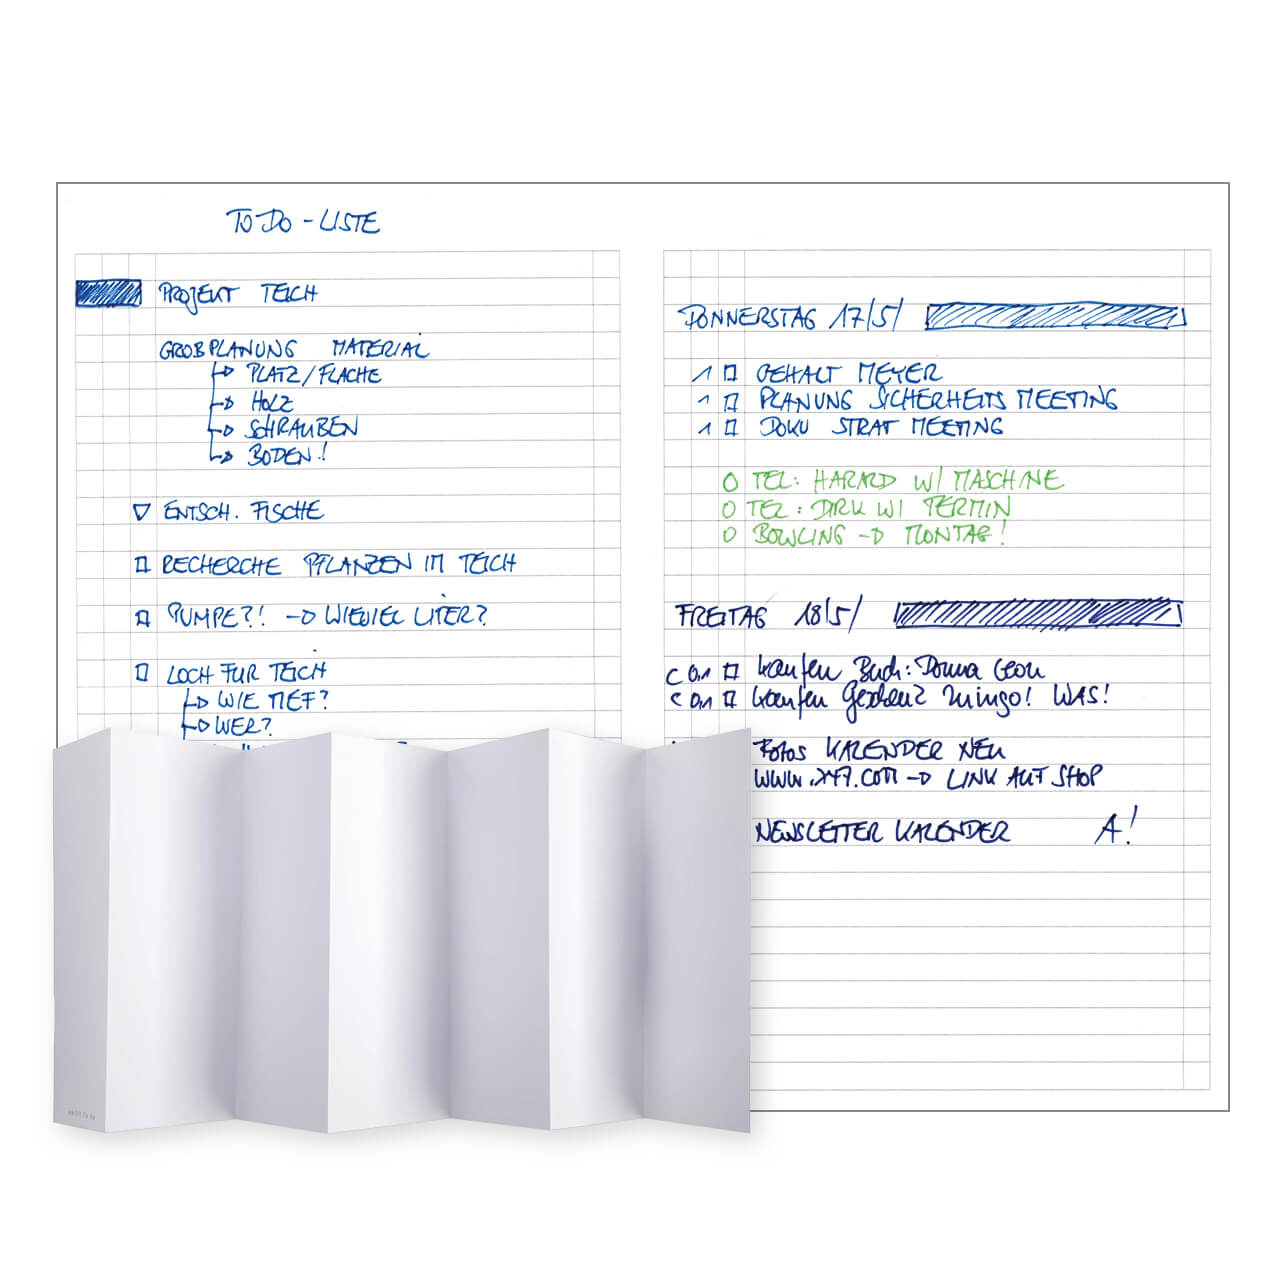 TO DO - LISTE
PROJEKT TEICH
GROBPLANUNG MATERIAL
PLATZ/FLÄCHE
HOLZ
SCHRAUBEN
BODEN!
ENTSCH. FISCHE
RECHERCHE PFLANZEN IM TEICH
PUMPE?! → WIEVIEL LITER?
LOCH FÜR TEICH
WIE TIEF?
WER?
DONNERSTAG 17/5/
1 GEHALT MEYER
1 PLANUNG SICHERHEITS MEETING
1 DOKU STRAT MEETING
TEL: HARALD W/ MASCHINE
TEL: DIRK W/ TERMIN
BOWLING → MONTAG!
FREITAG 18/5/
C 0,1 kaufen Buch: Donna Leon
C 0,1 kaufen Mingo! WAS!
Fotos KALENDER NEU
→ LINK AUF SHOP
NEWSLETTER KALENDER A!